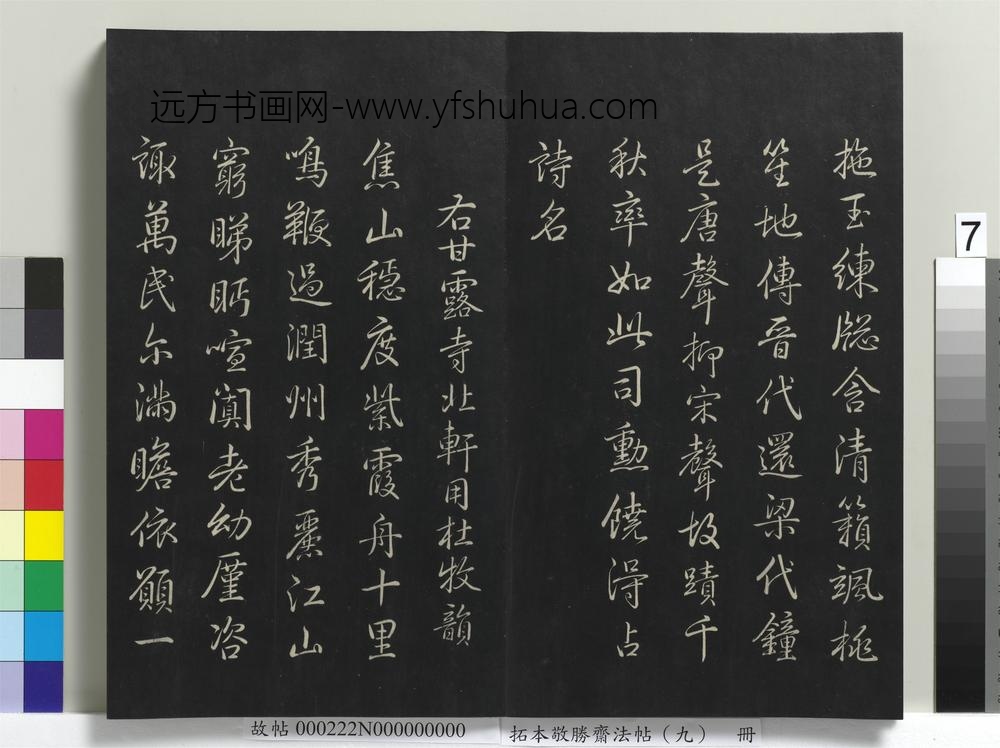 远方书画网-www.yfshuhua.com
拖玉練牕含清籟颯桃
笙地傳晉代還梁代鐘
是唐聲抑宋聲故蹟千
秋率如此司勳饒得占
詩名
右甘露寺北軒用杜牧韻
焦山穩度紫霞舟十里
鳴鞭過潤州秀麗江山
窮睇眄喧闐老幼廑咨
諏萬民尒滿瞻依願一
7
故帖 000222N000000000
拓本敬勝齋法帖（九） 冊